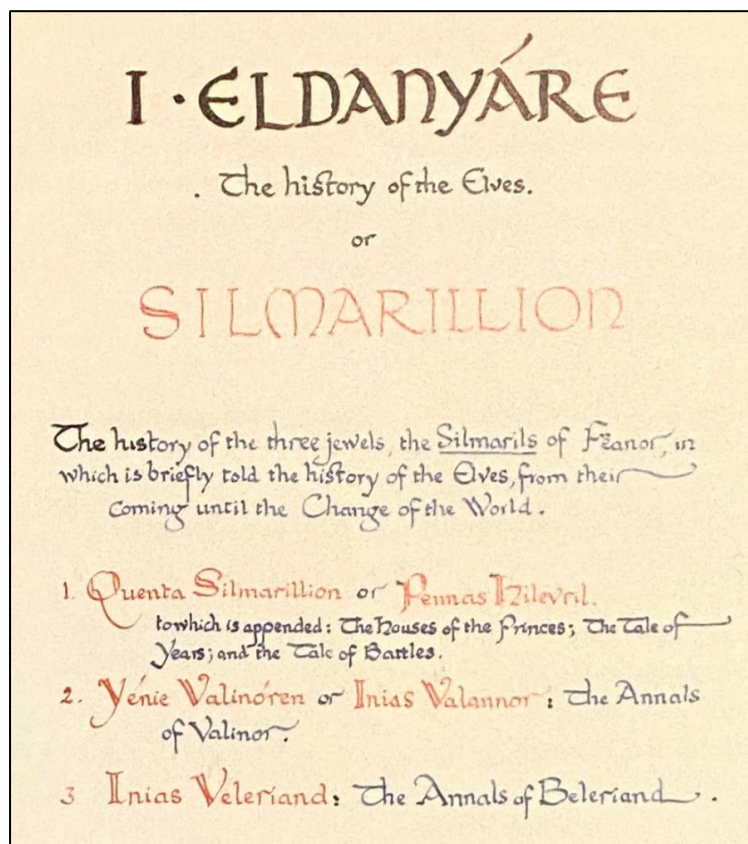 I · ELDANYÁRE
. The history of the Elves.
or
SILMARILLION
The history of the three jewels, the Silmarils of Fëanor, in
which is briefly told the history of the Elves, from their
coming until the Change of the World.
1. Quenta Silmarillion or Pennas Hilevril.
to which is appended: The Houses of the Princes; The Tale of
Years; and the Tale of Battles.
2. Yénie Valinóren or Inias Valannor: The Annals
of Valinor.
3 Inias Veleriand: The Annals of Beleriand .